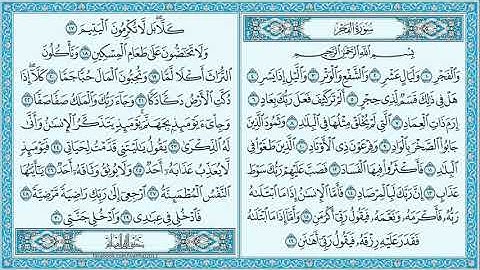 سُورَةُ الْفَجْرِ
بِسْمِ اللَّهِ الرَّحْمَٰنِ الرَّحِيمِ
وَالْفَجْرِ ﴿١﴾ وَلَيَالٍ عَشْرٍ ﴿٢﴾ وَالشَّفْعِ وَالْوَتْرِ ﴿٣﴾ وَاللَّيْلِ إِذَا يَسْرِ ﴿٤﴾
هَلْ فِي ذَٰلِكَ قَسَمٌ لِّذِي حِجْرٍ ﴿٥﴾ أَلَمْ تَرَ كَيْفَ فَعَلَ رَبُّكَ بِعَادٍ ﴿٦﴾
إِرَمَ ذَاتِ الْعِمَادِ ﴿٧﴾ الَّتِي لَمْ يُخْلَقْ مِثْلُهَا فِي الْبِلَٰدِ ﴿٨﴾ وَثَمُودَ الَّذِينَ
جَابُوا الصَّخْرَ بِالْوَادِ ﴿٩﴾ وَفِرْعَوْنَ ذِي الْأَوْتَادِ ﴿١٠﴾ الَّذِينَ طَغَوْا فِي
الْبِلَٰدِ ﴿١١﴾ فَأَكْثَرُوا فِيهَا الْفَسَادَ ﴿١٢﴾ فَصَبَّ عَلَيْهِمْ رَبُّكَ سَوْطَ
عَذَابٍ ﴿١٣﴾ إِنَّ رَبَّكَ لَبِالْمِرْصَادِ ﴿١٤﴾ فَأَمَّا الْإِنسَٰنُ إِذَا مَا ابْتَلَىٰهُ
رَبُّهُ فَأَكْرَمَهُ وَنَعَّمَهُ فَيَقُولُ رَبِّي أَكْرَمَنِ ﴿١٥﴾ وَأَمَّا إِذَا مَا ابْتَلَىٰهُ
فَقَدَرَ عَلَيْهِ رِزْقَهُ فَيَقُولُ رَبِّي أَهَٰنَنِ ﴿١٦﴾
كَلَّا بَل لَّا تُكْرِمُونَ الْيَتِيمَ ﴿١٧﴾
وَلَا تَحَٰضُّونَ عَلَىٰ طَعَامِ الْمِسْكِينِ ﴿١٨﴾ وَتَأْكُلُونَ
التُّرَاثَ أَكْلًا لَّمًّا ﴿١٩﴾ وَتُحِبُّونَ الْمَالَ حُبًّا جَمًّا ﴿٢٠﴾ كَلَّا إِذَا
دُكَّتِ الْأَرْضُ دَكًّا دَكًّا ﴿٢١﴾ وَجَاءَ رَبُّكَ وَالْمَلَكُ صَفًّا صَفًّا ﴿٢٢﴾
وَجِايءَ يَوْمَئِذٍ بِجَهَنَّمَ يَوْمَئِذٍ يَتَذَكَّرُ الْإِنسَٰنُ وَأَنَّىٰ
لَهُ الذِّكْرَىٰ ﴿٢٣﴾ يَقُولُ يَٰلَيْتَنِي قَدَّمْتُ لِحَيَاتِي ﴿٢٤﴾ فَيَوْمَئِذٍ
لَّا يُعَذِّبُ عَذَابَهُ أَحَدٌ ﴿٢٥﴾ وَلَا يُوثِقُ وَثَاقَهُ أَحَدٌ ﴿٢٦﴾ يَٰأَيَّتُهَا
النَّفْسُ الْمُطْمَئِنَّةُ ﴿٢٧﴾ ارْجِعِي إِلَىٰ رَبِّكِ رَاضِيَةً مَّرْضِيَّةً ﴿٢٨﴾
فَادْخُلِي فِي عِبَٰدِي ﴿٢٩﴾ وَادْخُلِي جَنَّتِي ﴿٣٠﴾